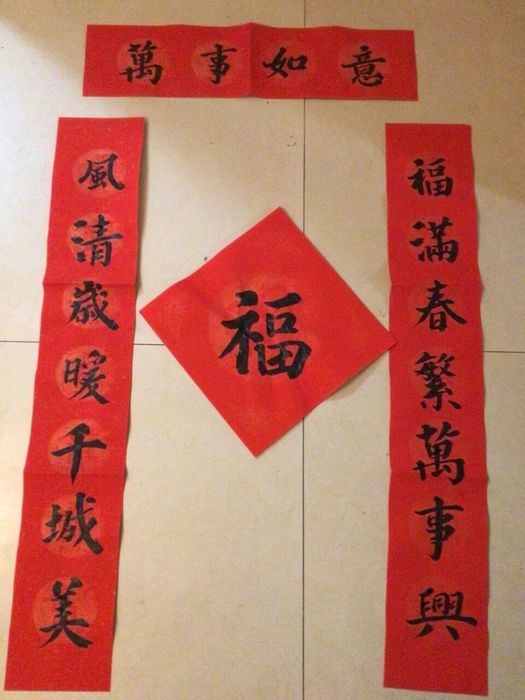 萬事如意
福滿春繁萬事興
風清歲暖千城美
福